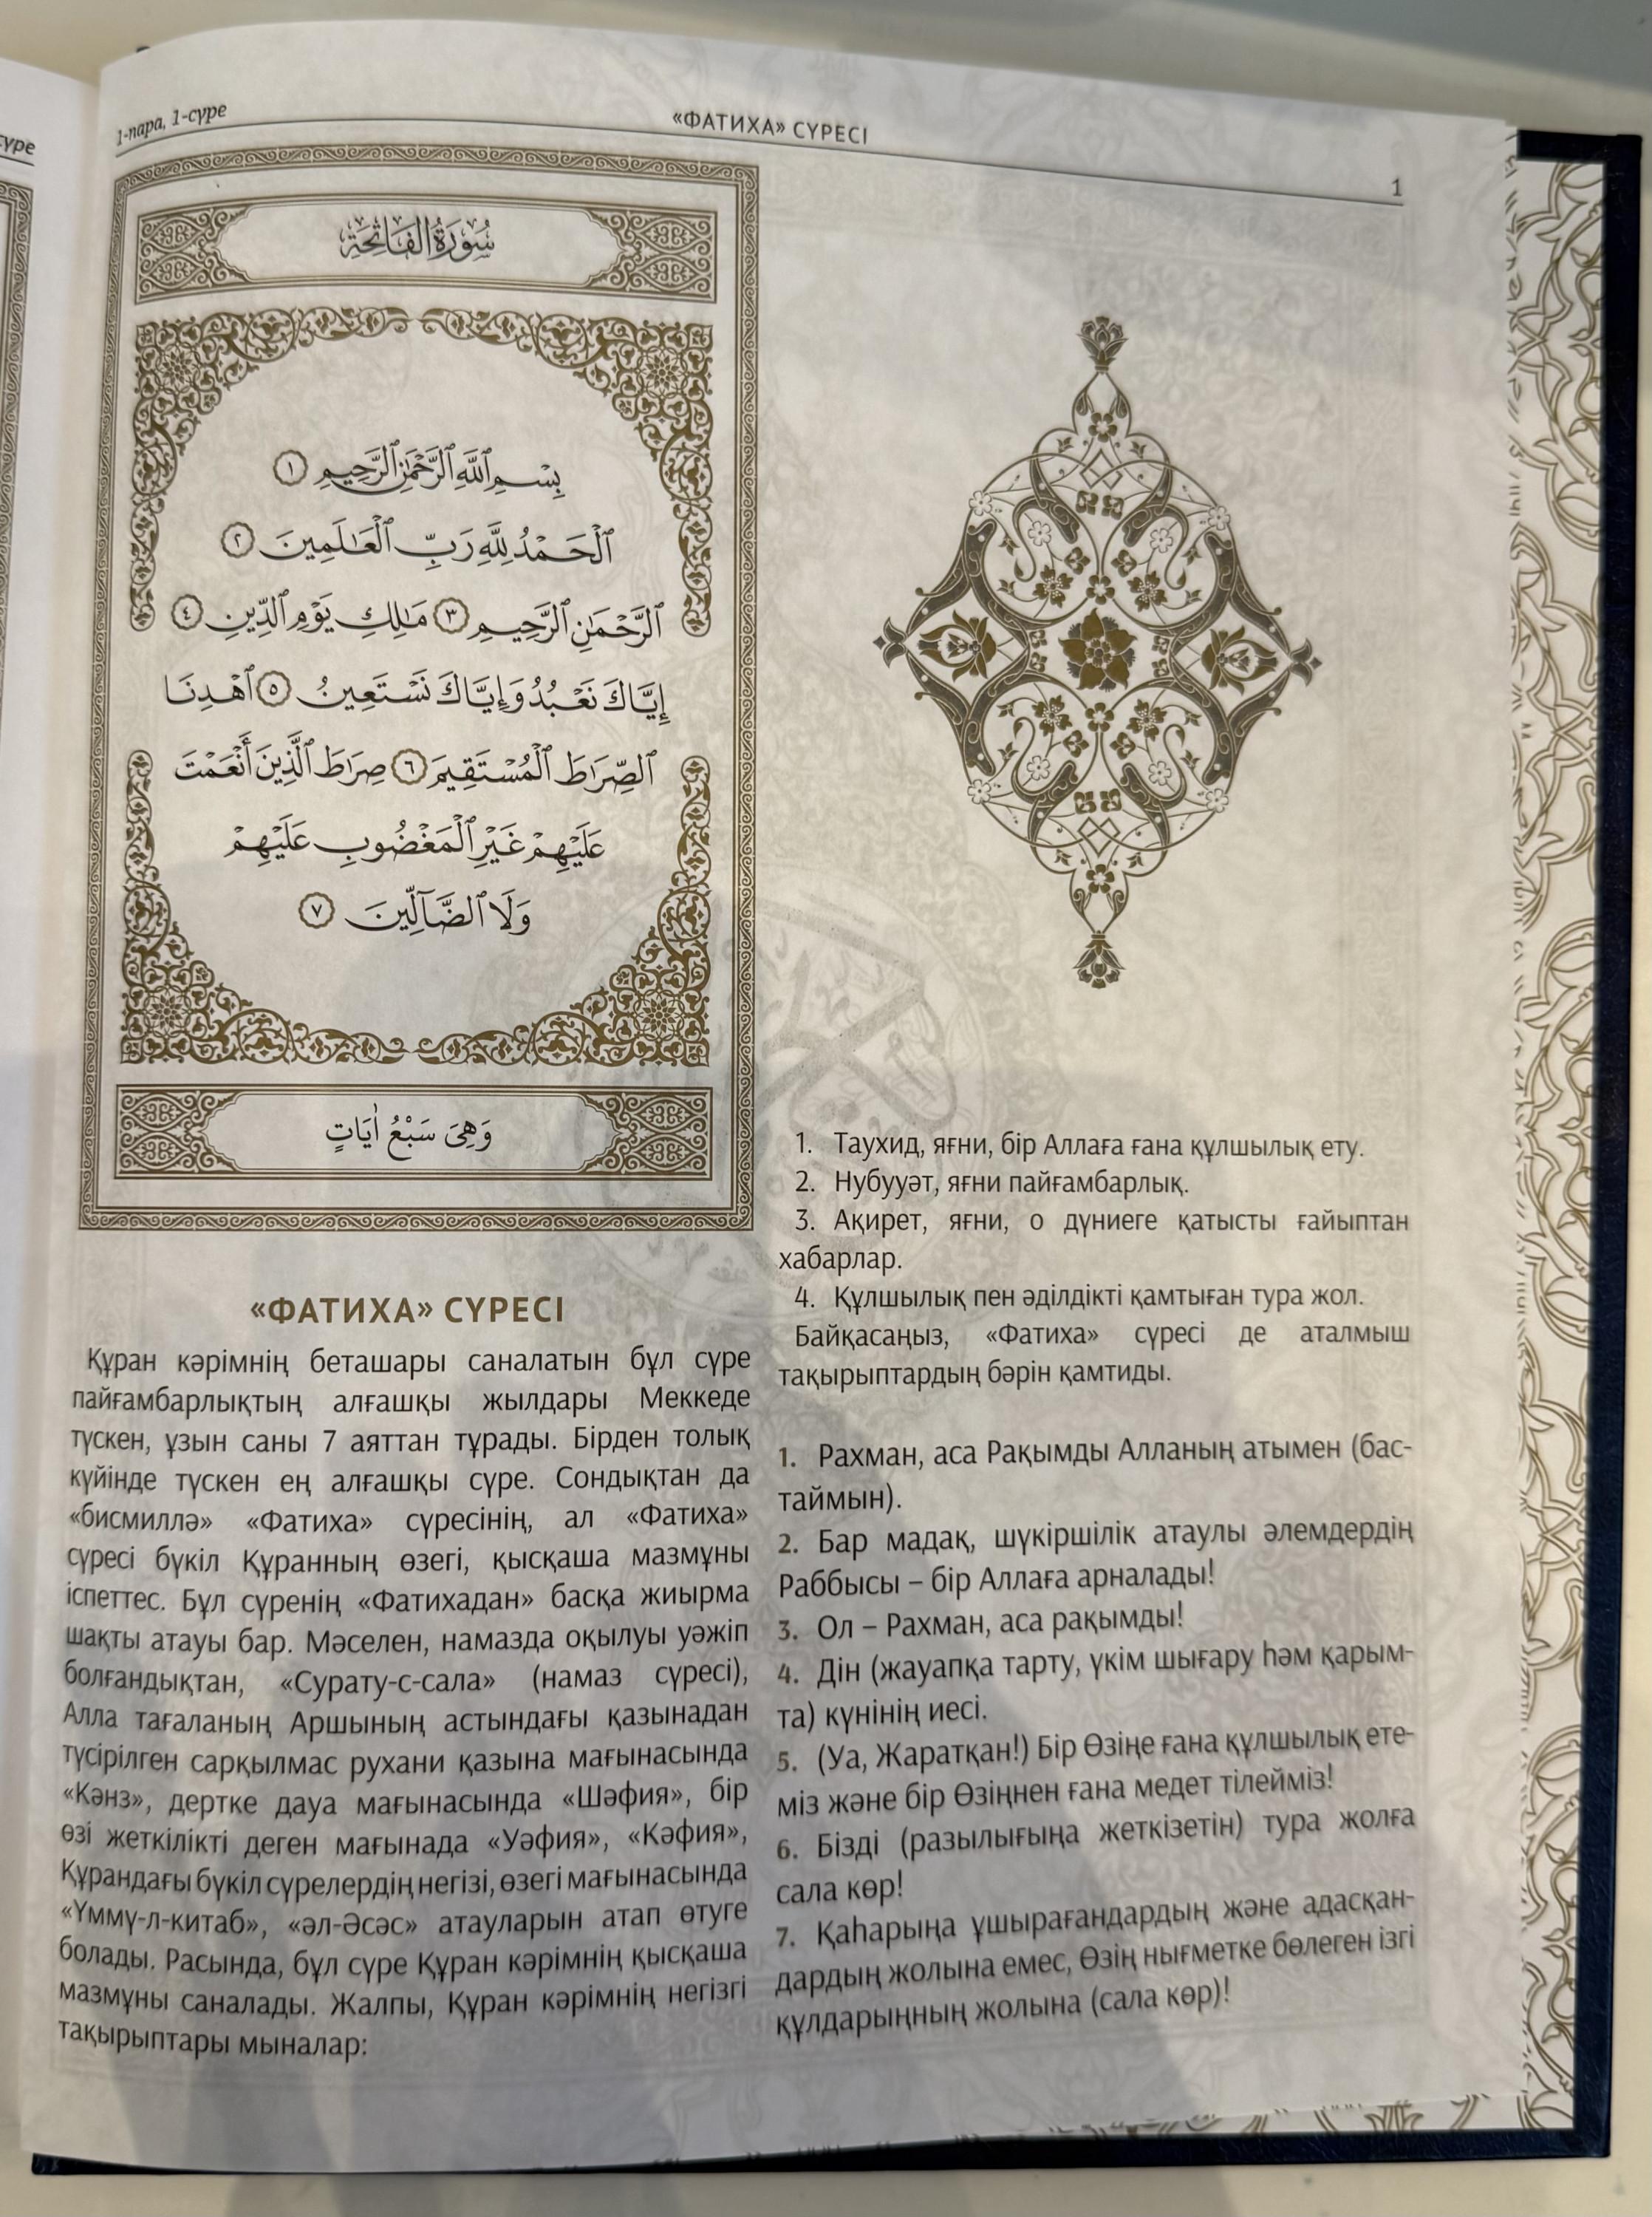 сүре
1-пара, 1-сүре
«ФАТИХА» СҮРЕСІ
1
سُورَةُ الفَاتِحَةِ
بِسْمِ ٱللَّهِ ٱلرَّحْمَٰنِ ٱلرَّحِيمِ ١
ٱلْحَمْدُ لِلَّهِ رَبِّ ٱلْعَٰلَمِينَ ٢
ٱلرَّحْمَٰنِ ٱلرَّحِيمِ ٣ مَٰلِكِ يَوْمِ ٱلدِّينِ ٤
إِيَّاكَ نَعْبُدُ وَإِيَّاكَ نَسْتَعِينُ ٥ ٱهْدِنَا
ٱلصِّرَٰطَ ٱلْمُسْتَقِيمَ ٦ صِرَٰطَ ٱلَّذِينَ أَنْعَمْتَ
عَلَيْهِمْ غَيْرِ ٱلْمَغْضُوبِ عَلَيْهِمْ
وَلَا ٱلضَّآلِّينَ ٧
وَهِيَ سَبْعُ اٰيَاتٍ
«ФАТИХА» СҮРЕСІ
Құран кәрімнің беташары саналатын бұл сүре
пайғамбарлықтың алғашқы жылдары Меккеде
түскен, ұзын саны 7 аяттан тұрады. Бірден толық
күйінде түскен ең алғашқы сүре. Сондықтан да
«бисмиллә» «Фатиха» сүресінің, ал «Фатиха»
сүресі бүкіл Құранның өзегі, қысқаша мазмұны
іспеттес. Бұл сүренің «Фатихадан» басқа жиырма
шақты атауы бар. Мәселен, намазда оқылуы уәжіп
болғандықтан, «Сурату-с-сала» (намаз сүресі),
Алла тағаланың Аршының астындағы қазынадан
түсірілген сарқылмас рухани қазына мағынасында
«Кәнз», дертке дауа мағынасында «Шәфия», бір
өзі жеткілікті деген мағынада «Уәфия», «Кәфия»,
Құрандағы бүкіл сүрелердің негізі, өзегі мағынасында
«Үммү-л-китаб», «әл-Әсәс» атауларын атап өтуге
болады. Расында, бұл сүре Құран кәрімнің қысқаша
мазмұны саналады. Жалпы, Құран кәрімнің негізгі
тақырыптары мыналар:
1. Таухид, яғни, бір Аллаға ғана құлшылық ету.
2. Нубууәт, яғни пайғамбарлық.
3. Ақирет, яғни, о дүниеге қатысты ғайыптан
хабарлар.
4. Құлшылық пен әділдікті қамтыған тура жол.
Байқасаңыз, «Фатиха» сүресі де аталмыш
тақырыптардың бәрін қамтиды.
1. Рахман, аса Рақымды Алланың атымен (бас-
таймын).
2. Бар мадақ, шүкіршілік атаулы әлемдердің
Раббысы – бір Аллаға арналады!
3. Ол – Рахман, аса рақымды!
4. Дін (жауапқа тарту, үкім шығару һәм қарым-
та) күнінің иесі.
5. (Уа, Жаратқан!) Бір Өзіңе ғана құлшылық ете-
міз және бір Өзіңнен ғана медет тілейміз!
6. Бізді (разылығыңа жеткізетін) тура жолға
сала көр!
7. Қаһарыңа ұшырағандардың және адасқан-
дардың жолына емес, Өзің нығметке бөлеген ізгі
құлдарыңның жолына (сала көр)!